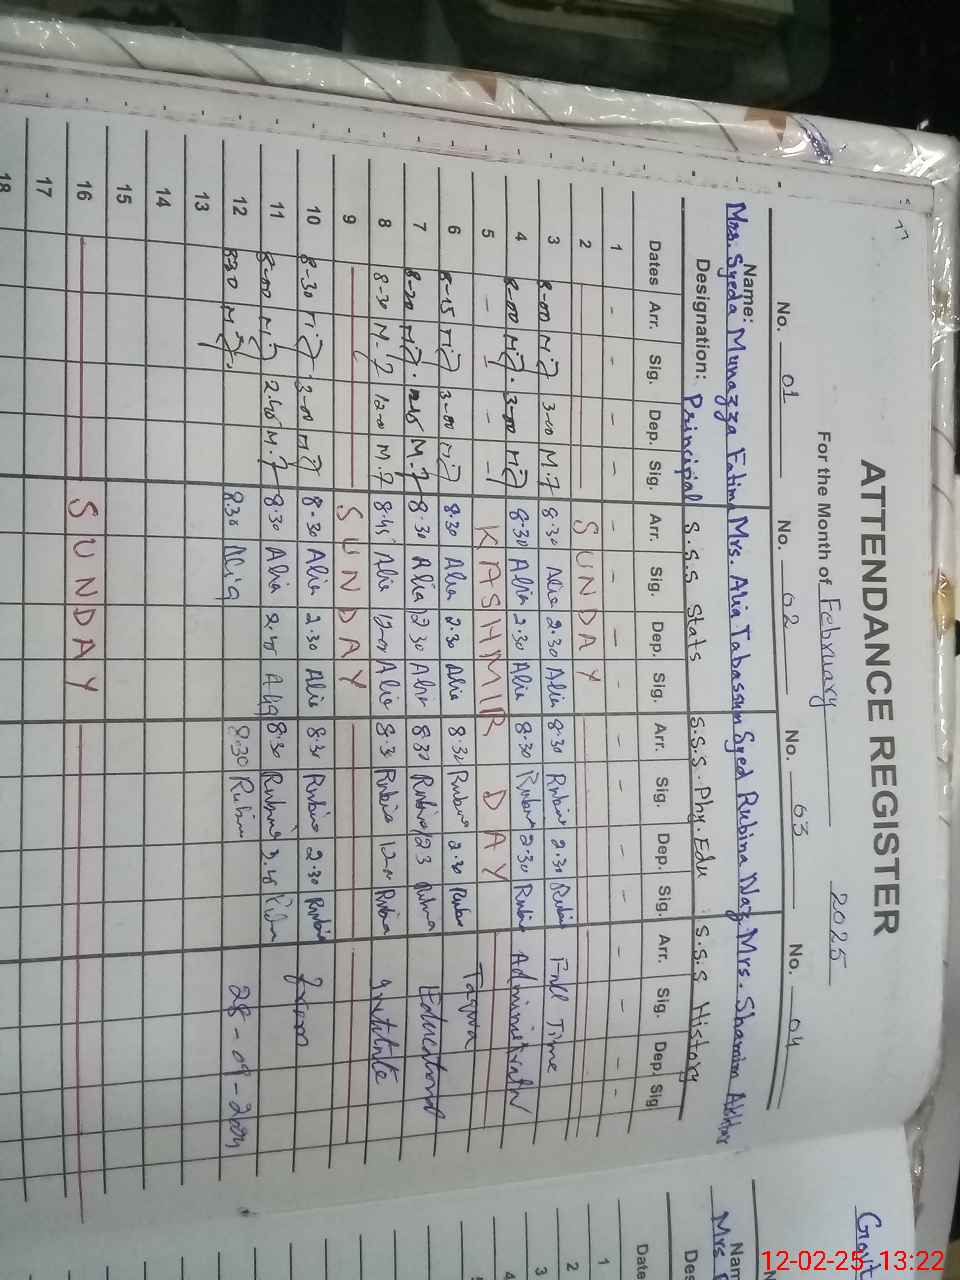 ATTENDANCE REGISTER
For the Month of February 2025
No. 01 No. 02 No. 03 No. 04
Name: Mrs. Syeda Munazza Fatima Mrs. Alia Tabassum Syed Rubina Naz Mrs. Shamim Akhtar
Designation: Principal S.S.S Stats S.S.S. Phy. Edu S.S.S History
Dates Arr. Sig. Dep. Sig. Arr. Sig. Dep. Sig. Arr. Sig. Dep. Sig. Arr. Sig. Dep. Sig
1 - - - - - - - - - - - - - - - -
2 SUNDAY
3 8-00 3-00 M.7 8.30 Alia 2.30 Alia 8.30 Rubina 2.30 Rubina Full Time
4 8-00 3-00 8.30 Alia 2.30 Alia 8.30 Rubina 2.30 Rubina
5 - - - - KASHMIR DAY
6 8-15 3-00 8.30 Alia 2.30 Alia 8.30 Rubina 2.30 Rubina
7 8-20 8.30 Alia 12 30 Alia 8.30 Rubina Rubina Educational
8 8-30 M.7 12-00 M.7 8.45 Alia 12-00 Alia 8.30 Rubina Rubina
9 SUNDAY
10 8-30 3-00 8-30 Alia 2.30 Alia 8.30 Rubina 2.30 Rubina from
11 8-00 2.45 M.7 8.30 Alia 2.45 Alia 8.30 Rubina 2.45
12 830 8.30 Alia 8.30 Rubina
13
14
15
16 SUNDAY
17
18
Govt
Name
Mrs
Des
Date
1
2
3
4
12-02-25 13:22